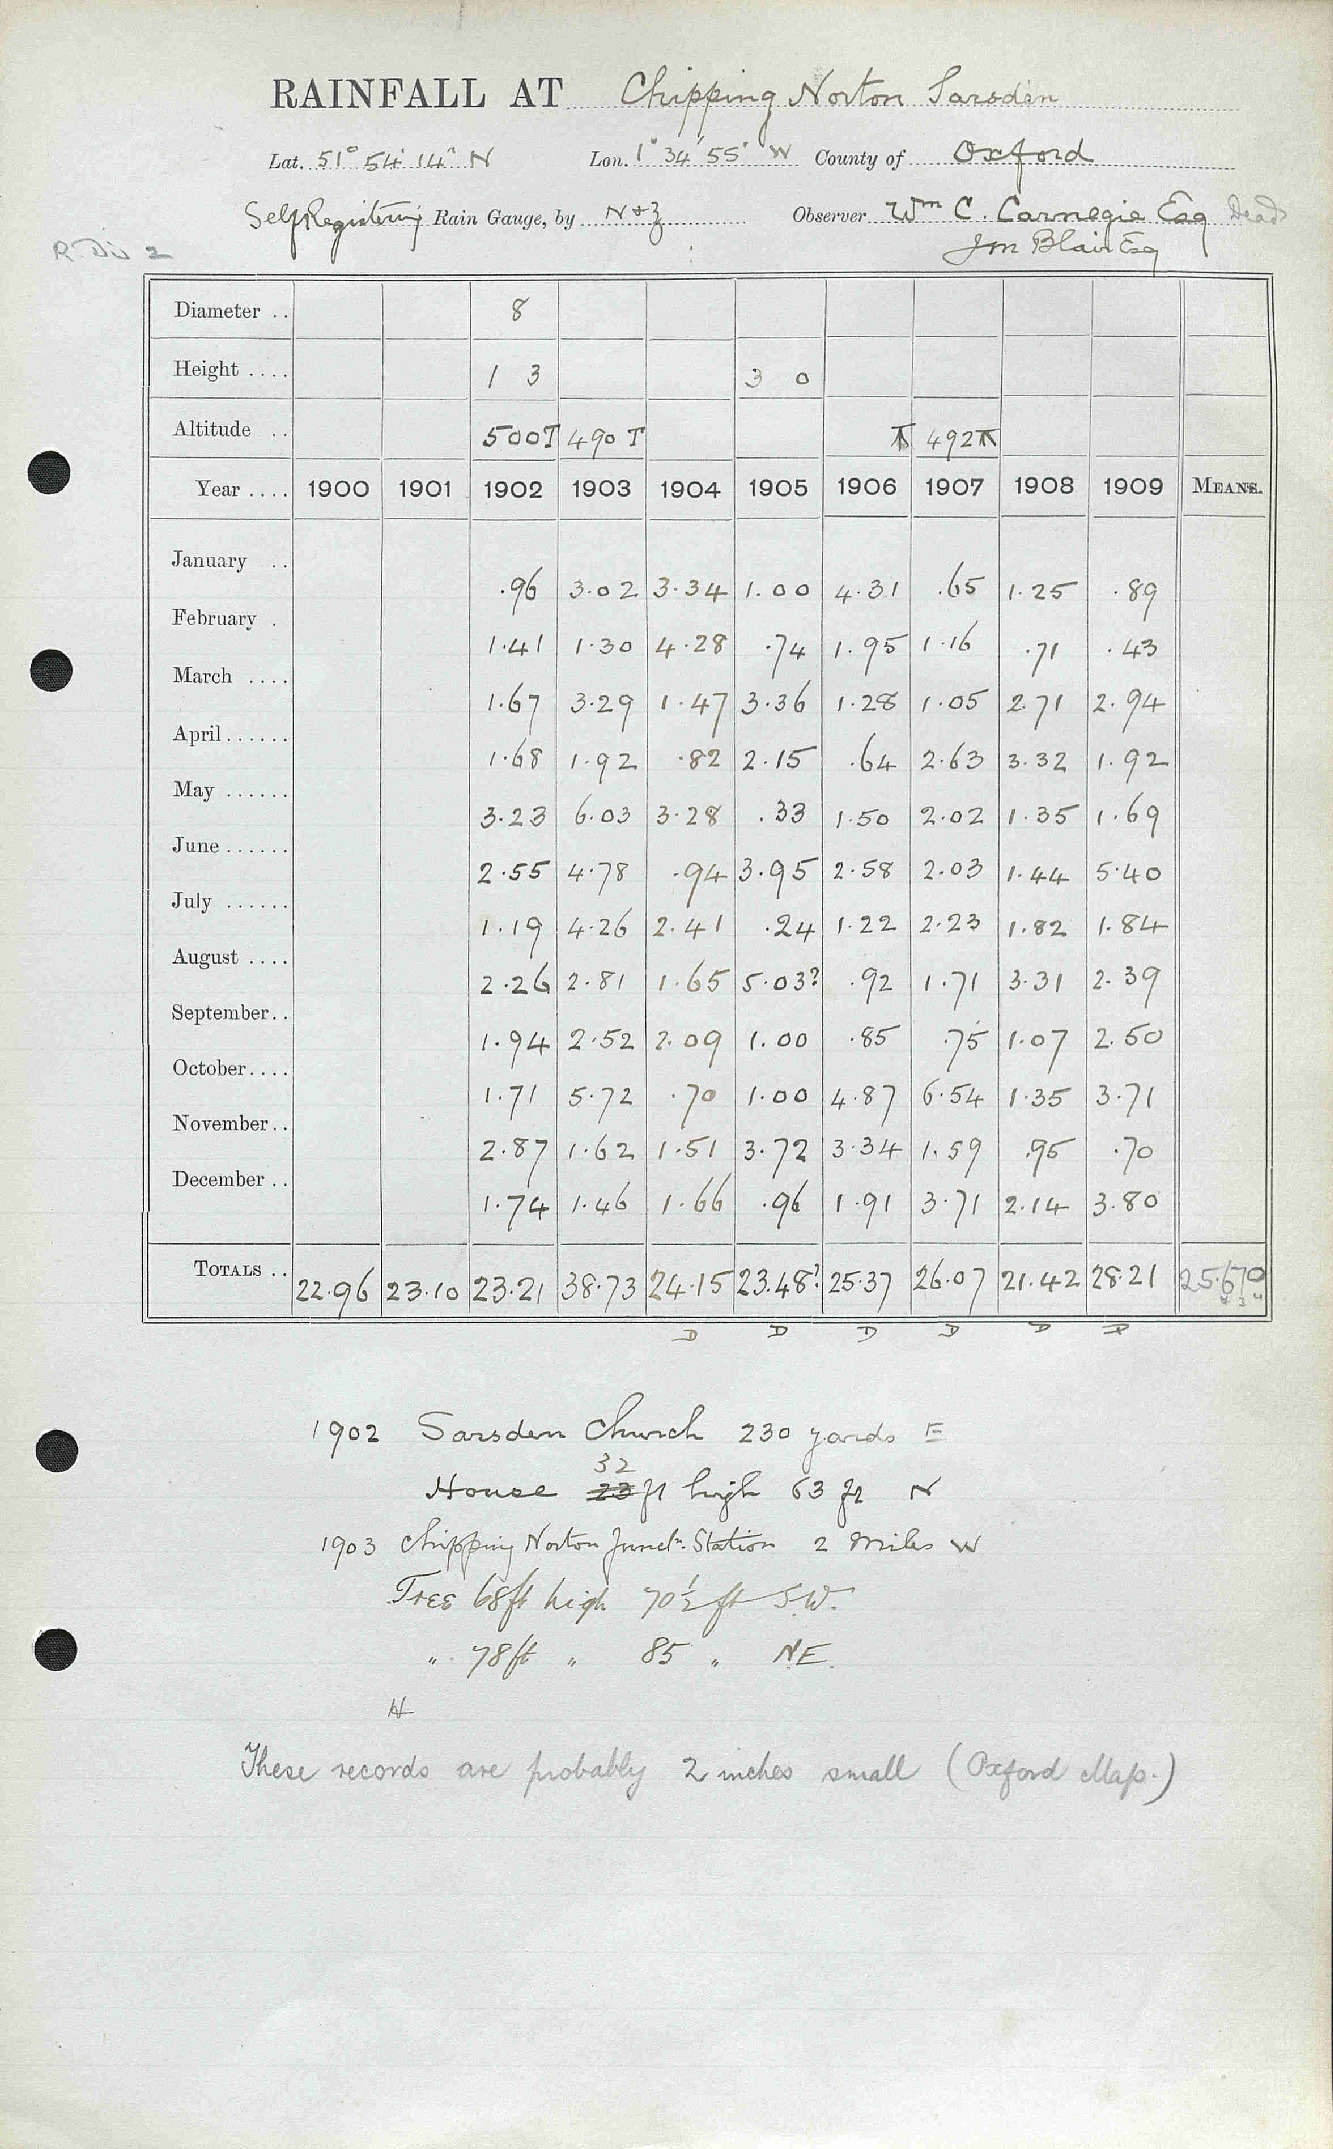 RAINFALL AT Chipping Norton Sarsden
Lat. 51° 54' 14" N Lon. 1° 34' 55" W County of Oxford
Self Registering Rain Gauge, by N & Z Observer Wm C. Carnegie Esq Dead
Jm Blair Esq
R. Div 2
Diameter .. 8
Height .... 1 3 3 0
Altitude .. 500T 490T 492
Year .... 1900 1901 1902 1903 1904 1905 1906 1907 1908 1909 MEANS.
January .. .96 3.02 3.34 1.00 4.31 .65 1.25 .89
February . 1.41 1.30 4.28 .74 1.95 1.16 .71 .43
March .... 1.67 3.29 1.47 3.36 1.28 1.05 2.71 2.94
April ...... 1.68 1.92 .82 2.15 .64 2.63 3.32 1.92
May ...... 3.23 6.03 3.28 .33 1.50 2.02 1.35 1.69
June ...... 2.55 4.78 .94 3.95 2.58 2.03 1.44 5.40
July ...... 1.19 4.26 2.41 .24 1.22 2.23 1.82 1.84
August .... 2.26 2.81 1.65 5.03? .92 1.71 3.31 2.39
September .. 1.94 2.52 2.09 1.00 .85 .75 1.07 2.50
October .... 1.71 5.72 .70 1.00 4.87 6.54 1.35 3.71
November .. 2.87 1.62 1.51 3.72 3.34 1.59 .95 .70
December .. 1.74 1.46 1.66 .96 1.91 3.71 2.14 3.80
TOTALS .. 22.96 23.10 23.21 38.73 24.15 23.48? 25.37 26.07 21.42 28.21 25.670
D D D D D D
1902 Sarsden Church 230 yards E
32
House 23 ft high 63 ft N
1903 Chipping Norton Junctn. Station 2 Miles W
Tree 68ft high 70½ ft S.W.
" 78ft " 85 " N.E.
H
These records are probably 2 inches small (Oxford Map.)